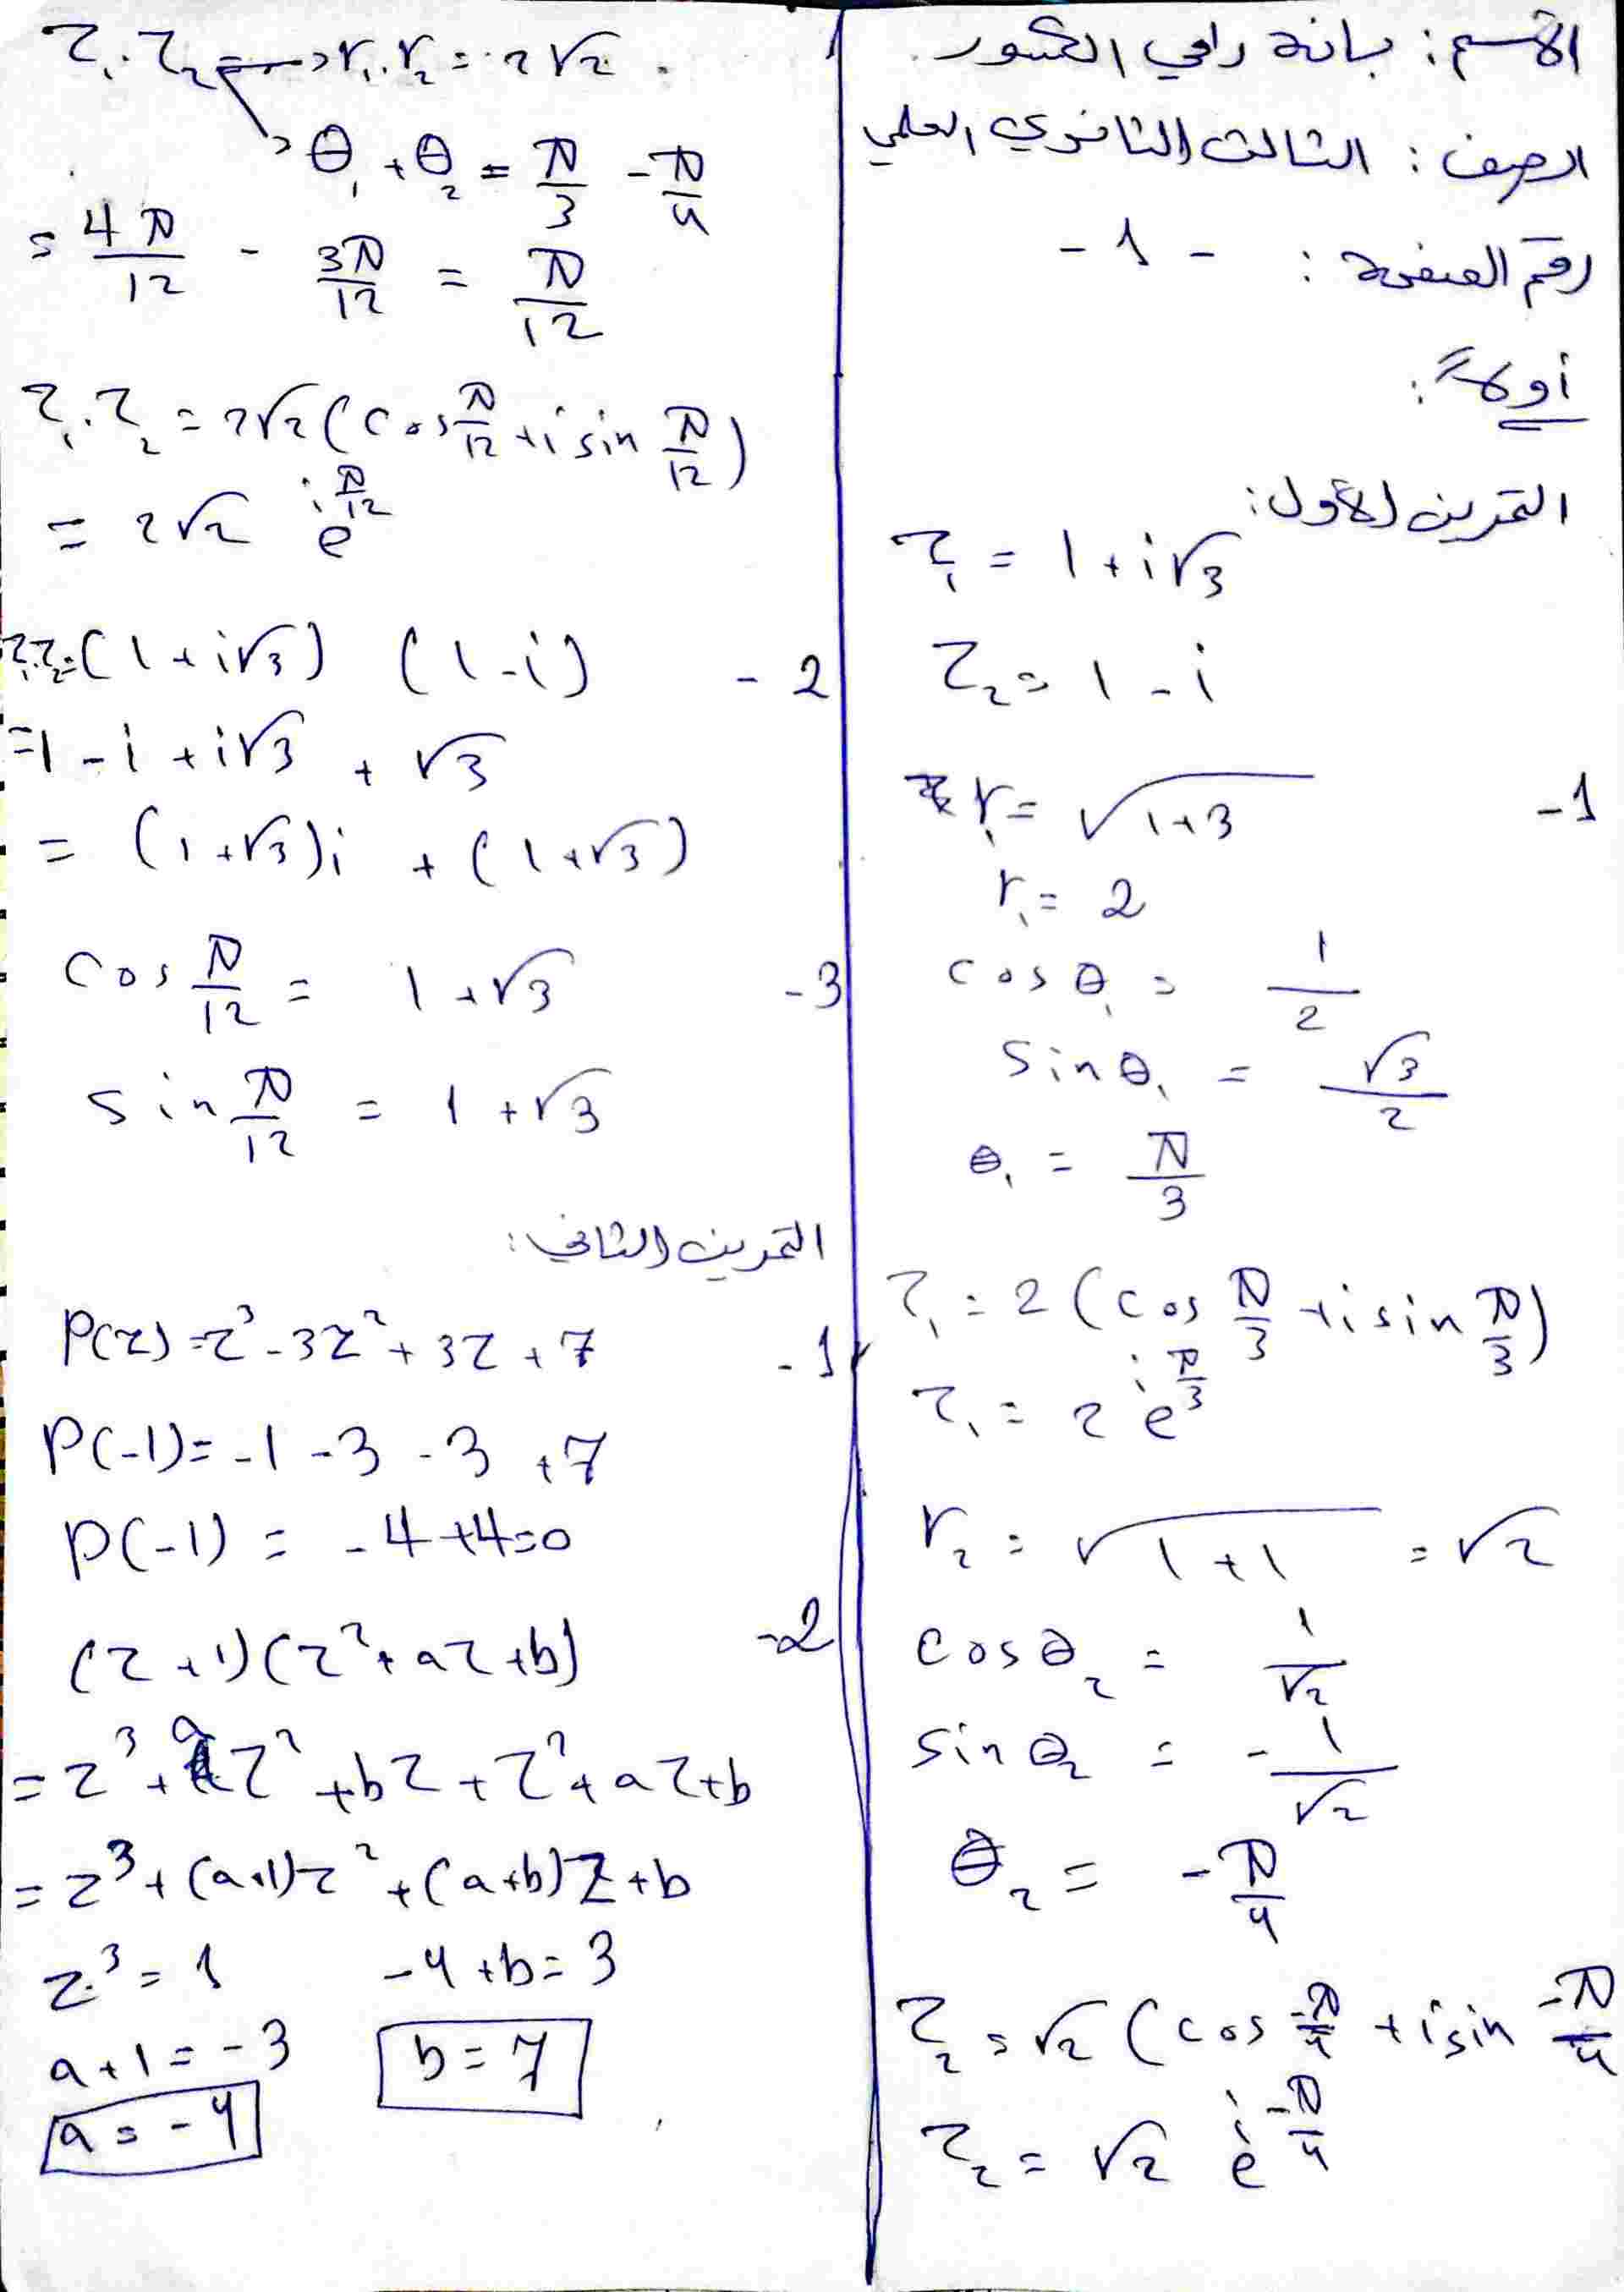 الأسم: بانة رامي الكور
الصف: الثالث الثانوي العلمي
رقم الصفحة: - 1 -
أولاً:
التمرين الأول:
z₁ = 1 + i√3
z₂ = 1 - i
-1 r₁ = √(1+3)
r₁ = 2
cos θ₁ = 1/2
sin θ₁ = √3/2
θ₁ = π/3
z₁ = 2 (cos π/3 + i sin π/3)
z₁ = 2 e^(i π/3)
r₂ = √(1+1) = √2
cos θ₂ = 1/√2
sin θ₂ = -1/√2
θ₂ = -π/4
z₂ = √2 (cos -π/4 + i sin -π/4)
z₂ = √2 e^(i -π/4)
z₁.z₂ → r₁.r₂ = 2√2
→ θ₁ + θ₂ = π/3 - π/4
= 4π/12 - 3π/12 = π/12
z₁.z₂ = 2√2 (cos π/12 + i sin π/12)
= 2√2 e^(i π/12)
-2 z₁.z₂ = (1 + i√3) (1 - i)
= 1 - i + i√3 + √3
= (1+√3)i + (1+√3)
-3 cos π/12 = 1 + √3
sin π/12 = 1 + √3
التمرين الثاني:
-1 P(z) = z³ - 3z² + 3z + 7
P(-1) = -1 - 3 - 3 + 7
P(-1) = -4 + 4 = 0
-2 (z + 1)(z² + az + b)
= z³ + az² + bz + z² + az + b
= z³ + (a+1)z² + (a+b)z + b
z³ = 1 -4 + b = 3
a + 1 = -3 b = 7
a = -4